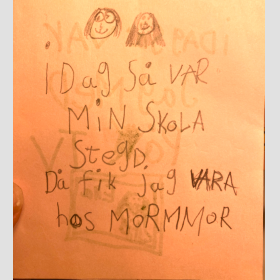 I DAg SÅ VAR
MIN SKOLA
StegD.
Då fik jag VARA
hos MORMMOR